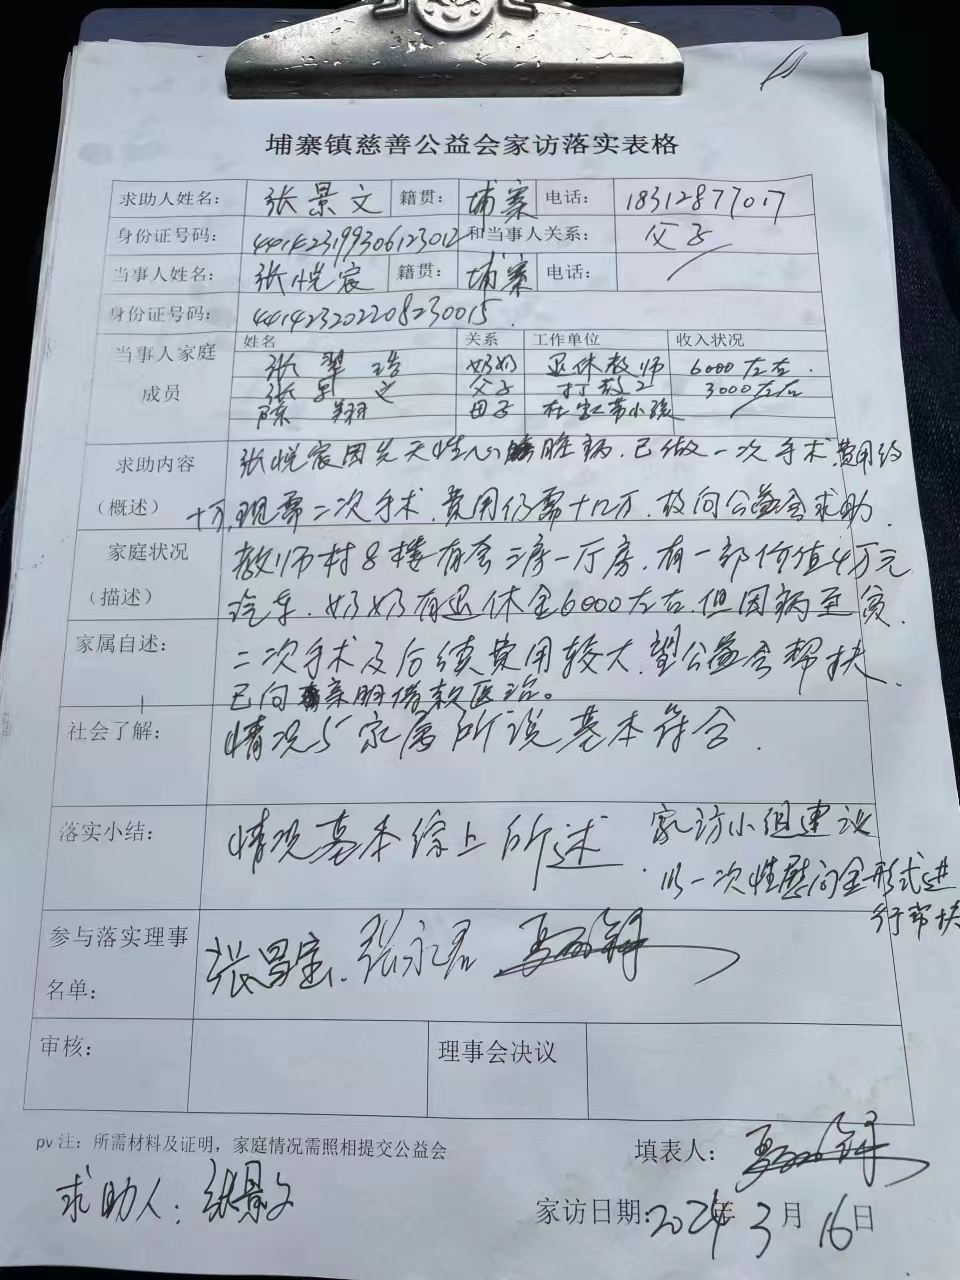 埔寨镇慈善公益会家访落实表格
求助人姓名： 张景文 籍贯： 埔寨 电话： 18312877017
身份证号码： 441423199306123012 和当事人关系： 父子
当事人姓名： 张悦宸 籍贯： 埔寨 电话：
身份证号码： 441423202208230015.
当事人家庭成员 姓名 关系 工作单位 收入状况
张翠 奶奶 退休教师 6000左右.
张景文 父子 打散工 3000左右
陈翔 母子 在家带小孩
求助内容（概述） 张悦宸因先天性心脏病.已做一次手术.费用约
十万,现需二次手术.费用仍需十几万.故向公益会求助.
家庭状况（描述） 教师村8楼有套三房一厅房.有一部价值4万元
汽车.奶奶有退休金6000左右.但因病至贫.
家属自述： 二次手术及后续费用较大.望公益会帮扶.
已向亲朋借款医治。
社会了解： 情况与家属所说基本符合.
落实小结： 情况基本综上所述. 家访小组建议
以一次性慰问金形式进
行帮扶
参与落实理事名单： 张昌宝.张永君
审核： 理事会决议
pv 注：所需材料及证明，家庭情况需照相提交公益会
填表人：
求助人：张景文
家访日期:2024年3月16日